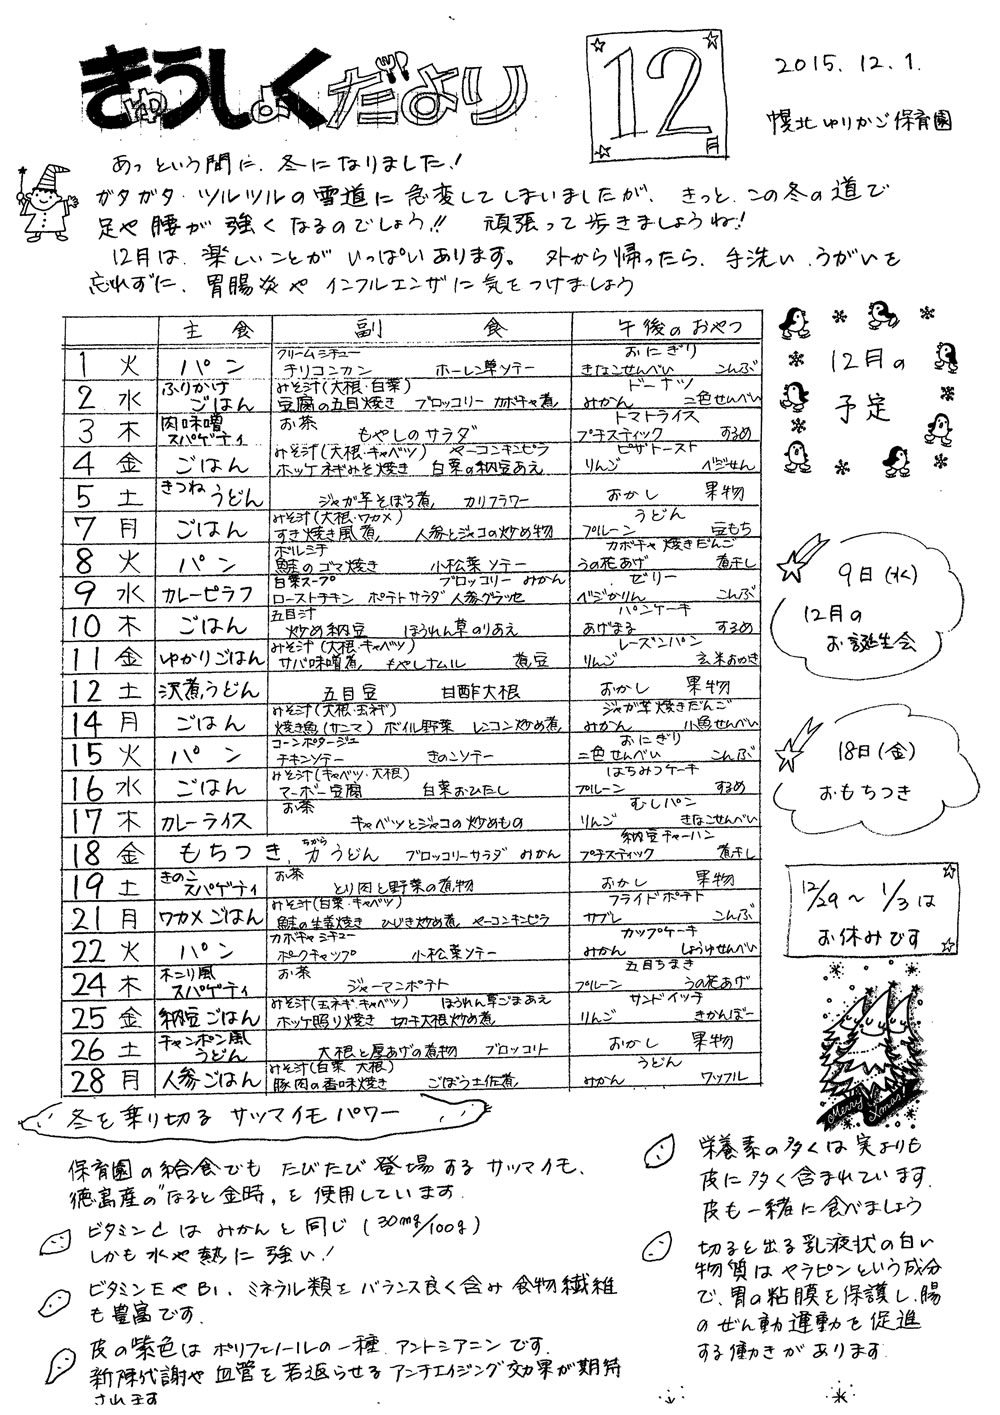 きゅうしょくだより
12月
2015.12.1.
幌北ゆりかご保育園
あっという間に、冬になりました!
ガタガタ・ツルツルの雪道に急変してしまいましたが、きっと、この冬の道で
足や腰が強くなるのでしょう!! 頑張って歩きましょうね!
12月は、楽しいことがいっぱいあります。外から帰ったら、手洗い、うがいを
忘れずに、胃腸炎やインフルエンザに気をつけましょう
主食 副食 午後のおやつ
1 火 パン クリームシチュー チリコンカン ホーレン草ソテー おにぎり きなこせんべい こんぶ
2 水 ふりかけごはん みそ汁(大根・白菜) 豆腐の五目焼き ブロッコリー カボチャ煮 ドーナツ みかん 二色せんべい
3 木 肉味噌スパゲティ お茶 もやしのサラダ トマトライス プチスティック するめ
4 金 ごはん みそ汁(大根・キャベツ) ヤーコンキンピラ ホッケネギみそ焼き 白菜の納豆あえ ピザトースト りんご ベジせん
5 土 きつねうどん ジャガ芋そぼろ煮 カリフラワー おかし 果物
7 月 ごはん みそ汁(大根・ワカメ) すき焼き風煮 人参とジャコの炒め物 うどん プルーン 豆もち
8 火 パン ボルシチ 鮭のゴマ焼き 小松菜ソテー カボチャ焼きだんご うの花あげ 煮干し
9 水 カレーピラフ 白菜スープ ブロッコリー みかん ローストチキン ポテトサラダ 人参グラッセ ゼリー ベジかりん こんぶ
10 木 ごはん 五目汁 炒め納豆 ほうれん草のりあえ パンケーキ あげまる するめ
11 金 ゆかりごはん みそ汁(大根・キャベツ) サバ味噌煮 もやしナムル 煮豆 レーズンパン りんご 玄米おかき
12 土 沢煮うどん 五目豆 甘酢大根 おかし 果物
14 月 ごはん みそ汁(大根・玉ネギ) 焼き魚(サンマ) ボイル野菜 レンコン炒め煮 ジャガ芋焼きだんご みかん 小魚せんべい
15 火 パン コーンポタージュ チキンソテー きのこソテー おにぎり 二色せんべい こんぶ
16 水 ごはん みそ汁(キャベツ・大根) マーボー豆腐 白菜おひたし はちみつケーキ プルーン するめ
17 木 カレーライス お茶 キャベツとジャコの炒めもの むしパン りんご きなこせんべい
18 金 もちつき 力うどん ちから ブロッコリーサラダ みかん 納豆チャーハン プチスティック 煮干し
19 土 きのこスパゲティ お茶 とり肉と野菜の煮物 おかし 果物
21 月 ワカメごはん みそ汁(白菜・キャベツ) 鮭の生姜焼き ひじき炒め煮 ヤーコンキンピラ フライドポテト サブレ こんぶ
22 火 パン カボチャシチュー ポークチャップ 小松菜ソテー カップケーキ みかん しょうゆせんべい
24 木 木こり風スパゲティ お茶 ジャーマンポテト 五目ちまき プルーン うの花あげ
25 金 納豆ごはん みそ汁(玉ネギ・キャベツ) ほうれん草ごまあえ ホッケ照り焼き 切干大根炒め煮 サンドイッチ りんご きかんぼー
26 土 チャンポン風うどん 大根と厚あげの煮物 ブロッコリー おかし 果物
28 月 人参ごはん みそ汁(白菜 大根) 豚肉の香味焼き ごぼう土佐煮 うどん みかん ワッフル
12月の
予定
9日(水)
12月の
お誕生会
18日(金)
おもちつき
12/29〜1/3は
お休みです
Merry Xmas!
冬を乗り切るサツマイモパワー
保育園の給食でもたびたび登場するサツマイモ、
徳島産の"なると金時"を使用しています。
ビタミンCはみかんと同じ(30mg/100g)
しかも水や熱に強い!
ビタミンEやB1、ミネラル類をバランス良く含み食物繊維
も豊富です。
皮の紫色はポリフェノールの一種、アントシアニンです。
新陳代謝や血管を若返らせるアンチエイジング効果が期待
されます
栄養素の多くは実よりも
皮に多く含まれています。
皮も一緒に食べましょう
切ると出る乳液状の白い
物質はヤラピンという成分
で、胃の粘膜を保護し、腸
のぜん動運動を促進
する働きがあります。